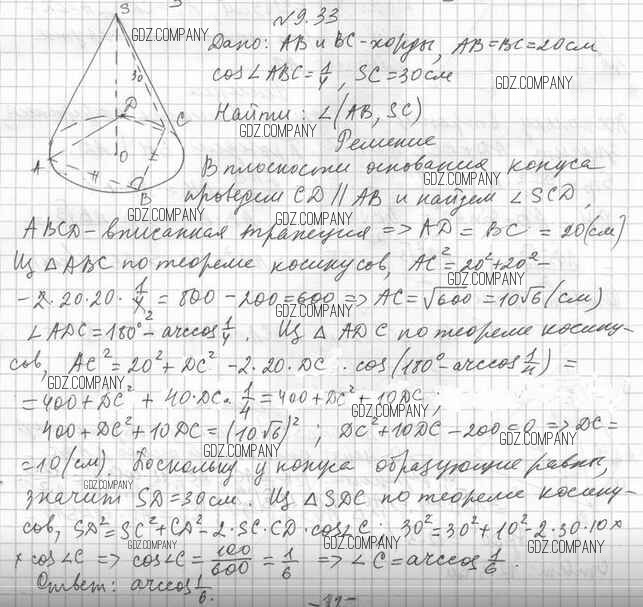 №9.33
S
GDZ.COMPANY
Дано: AB и BC-хорды, AB=BC=20см
30
cos∠ABC=1/4, SC=30см
GDZ.COMPANY
Найти: ∠(AB, SC)
GDZ.COMPANY
D C
Решение
A O
В плоскости основания конуса
GDZ.COMPANY
B
проведем CD || AB и найдем ∠SCD,
GDZ.COMPANY GDZ.COMPANY
ABCD-вписанная трапеция => AD = BC = 20(см)
Из △ABC по теореме косинусов, AC²=20²+20²-
GDZ.COMPANY
-2·20·20·1/4=800-200=600 => AC=√600=10√6(см)
GDZ.COMPANY
∠ADC=180°-arccos1/4. Из △ADC по теореме косину-
сов, AC²=20²+DC²-2·20·DC·cos(180°-arccos1/4)=
GDZ.COMPANY
=400+DC²+40·DC·1/4=400+DC²+10DC;
GDZ.COMPANY
400+DC²+10DC=(10√6)²; DC²+10DC-200=0 => DC=
GDZ.COMPANY GDZ.COMPANY
=10(см). Поскольку у конуса образующие равны,
GDZ.COMPANY
значит SD=30см. Из △SDC по теореме косину-
сов, SD²=SC²+CD²-2·SC·CD·cos∠C; 30²=30²+10²-2·30·10×
GDZ.COMPANY GDZ.COMPANY GDZ.COMPANY
×cos∠C => cos∠C=100/600=1/6 => ∠C=arccos1/6.
Ответ: arccos1/6.